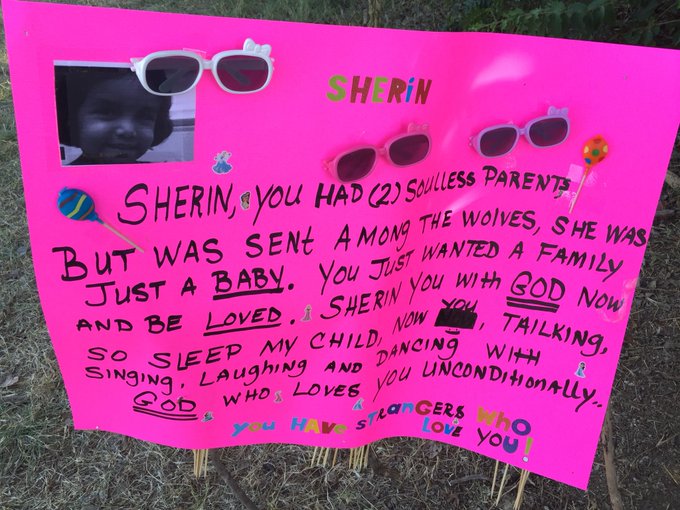 SHERiN
SHERIN, YOU HAD (2) SOULLESS PARENTS
BUT WAS SENt AMONG THE WOLVES, SHE WAS
JUST A BABY. YOU JUST WANTED A FAMILY
AND BE LOVED. SHERIN YOU With GOD NOW
SO SLEEP MY CHILD, NOW YOU, TAILKING,
SINGING, LAUGHING AND DANCING WITH
GOD WHO LOVES YOU UNCONDITIONALLY..
yOu HAVE STRanGERS WhO
LOVE YOU!